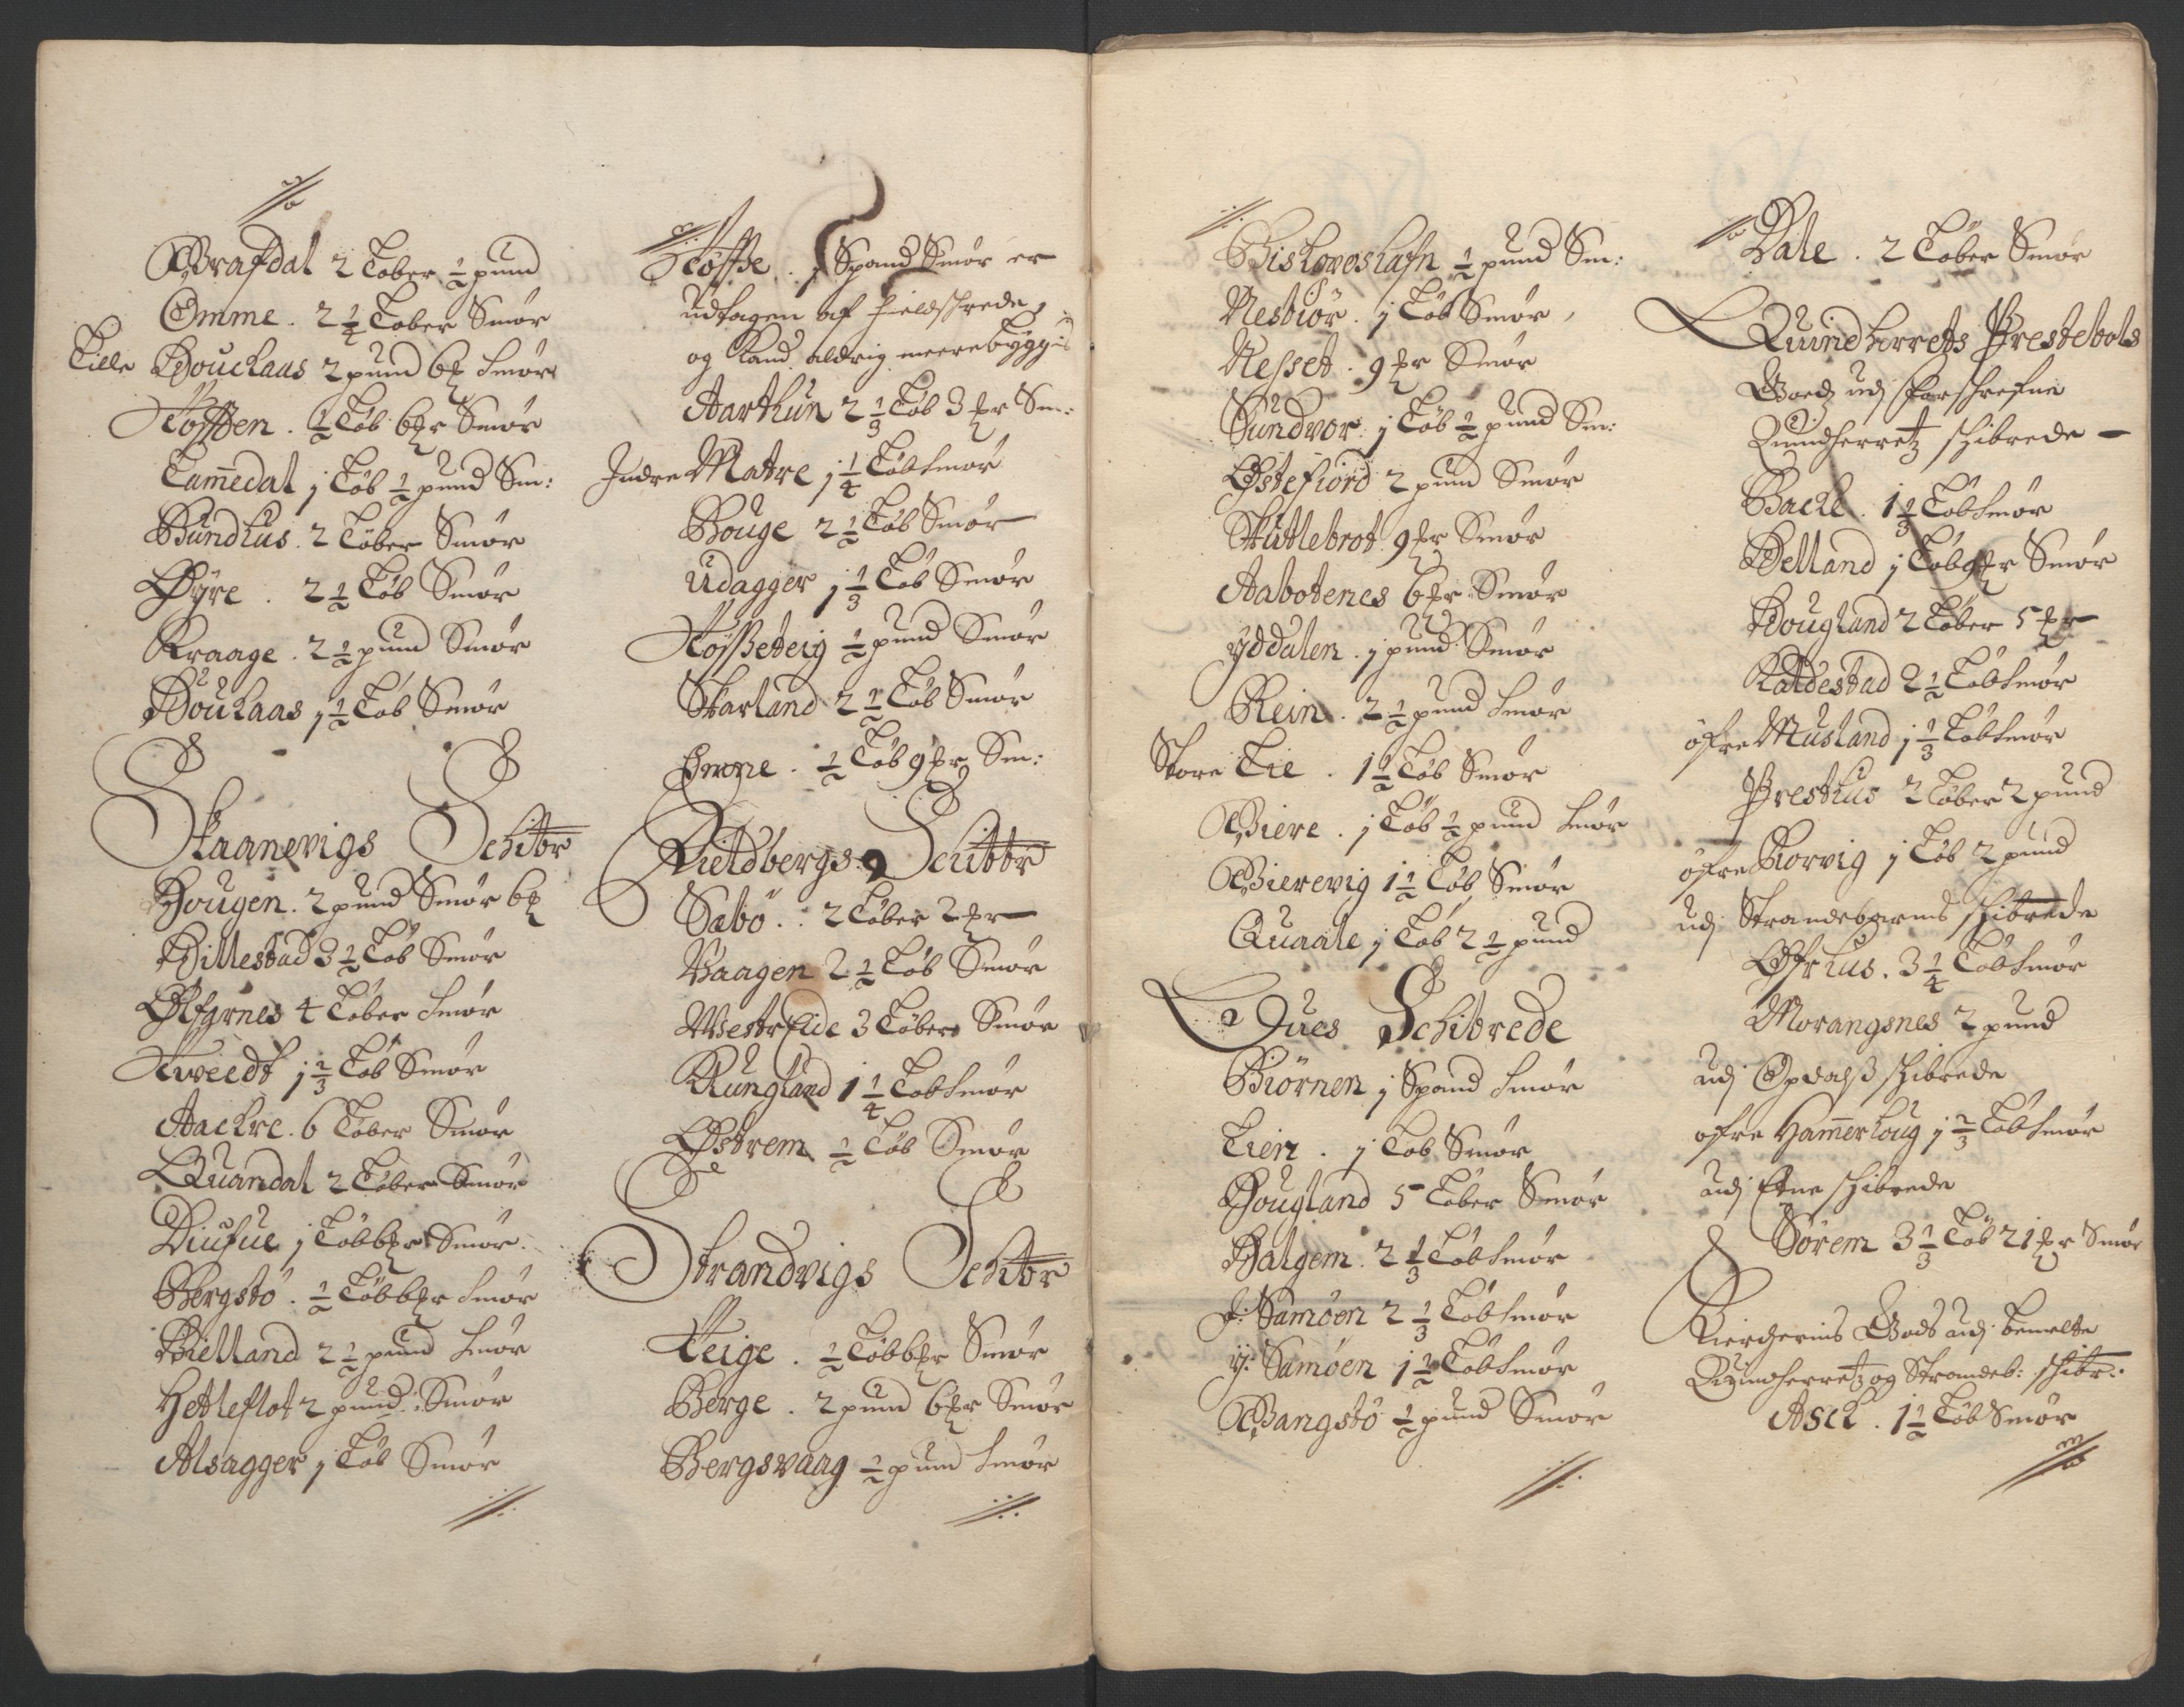 Grafdal 2 Løber ½ pund
Omme . 2¼ Løber Smør
Lille Houckaas 2 pund 6 ℔ Smør
Tofften . ½ Løb 6 ℔r Smør
Lam̃edal j Løb ½ pund Sm:
Bundhus . 2 Løber Smør
Øÿre . 2½ Løb Smør
Kraage . 2½ pund Smør
Houkaas j½ Løb Smør
Skaanevigs Schibr
Hougen . 2 pund Smør 6 ℔
Hillestad 3½ Løb Smør
Ølfgrnes 4 Løber Smør
Tveedt j⅔ Løb Smør
Aackre . 6 Løber Smør
Quandal 2 Løber Smør
Diufue j Løb 6 ℔r Smør
Bergstø . ½ Løb 6 ℔r Smør
Hielland 2½ pund Smør
Hetleflot 2 pund Smør
Alsagger j Løb Smør
Tøsse . j Spand Smør er
udtagen af fieldschrede,
og Kand aldrig meere bÿggis
Aarthun 2⅓ Løb 3 ℔r Sm:
Indre Matre j¼ Løb Smør
Houge 2½ Løb Smør
Udagger j⅓ Løb Smør
Tøsseteig ½ pund Smør
Skarland 2½ Løb Smør
Omme . ½ Løb 9 ℔r Sm:
Fieldbergs Schibbr
Sæbø . . 2 Løber 2 ℔r
Vaagen 2½ Løb Smør
Westr Eide 3 Løber Smør
Rungland 1¼ Løb Smør
Østrem ½ Løb Smør
Strandvigs Schibr
Teige . ½ Løb 6 ℔r Smør
Berge . 2 pund 6 ℔r Smør
Bergsvaag ½ pund Smør
Biskopeshafn ½ pund Sm:
Nestiør . j Løb Smør,
Nesset . 9 ℔r Smør
Sundvor . j Løb ½ pund Sm:
Østefiord 2 pund Smør
Skutlebrot 9 ℔r Smør
Aabotenes 6 ℔r Smør
ÿddalen . j pund Smør
Rein . 2½ pund Smør
Store Lie . 1½ Løb Smør
Giere . j Løb ½ pund Smør
Gierevig 1½ Løb Smør
Quaale j Løb 2½ pund
Oues Schibrede
Biørnen j Spand Smør
Lien . j Løb Smør
Hougland 5 Løber Smør
Halgem . 2⅓ Løb Smør
J: Samøen 2⅓ Løb Smør
ÿ: Samøen j½ Løb Smør
Bangstø ½ pund Smør
Dale . 2 Løber Smør
Quindherrets Prestebols
Goedz udj forschrefne
Quindherretz schibrede
Backe . 1⅓ Løb Smør
Helland j Løb 9 ℔r Smør
Hougland 2 Løber 5 ℔r
Kaldestad 2½ Løb Smør
øfre Musland j⅓ Løb Smør
Presthus 2 Løber 2 pund
øfre Rorvig j Løb 2 pund
udj Strandebarms schibrede
Øfrhus . 3¼ Løb Smør
Morangsnes 2 pund
udj Opdals schibrede
ofre Ham̃erhoug j⅔ Løb Smør
udj Etne schibrede
Sørem 3⅓ Løb 21 ℔r Smør
Kierchens Gods udj bemelte
Quindherretz og Strandeb: schibr:
Asck . 1½ Løb Smør